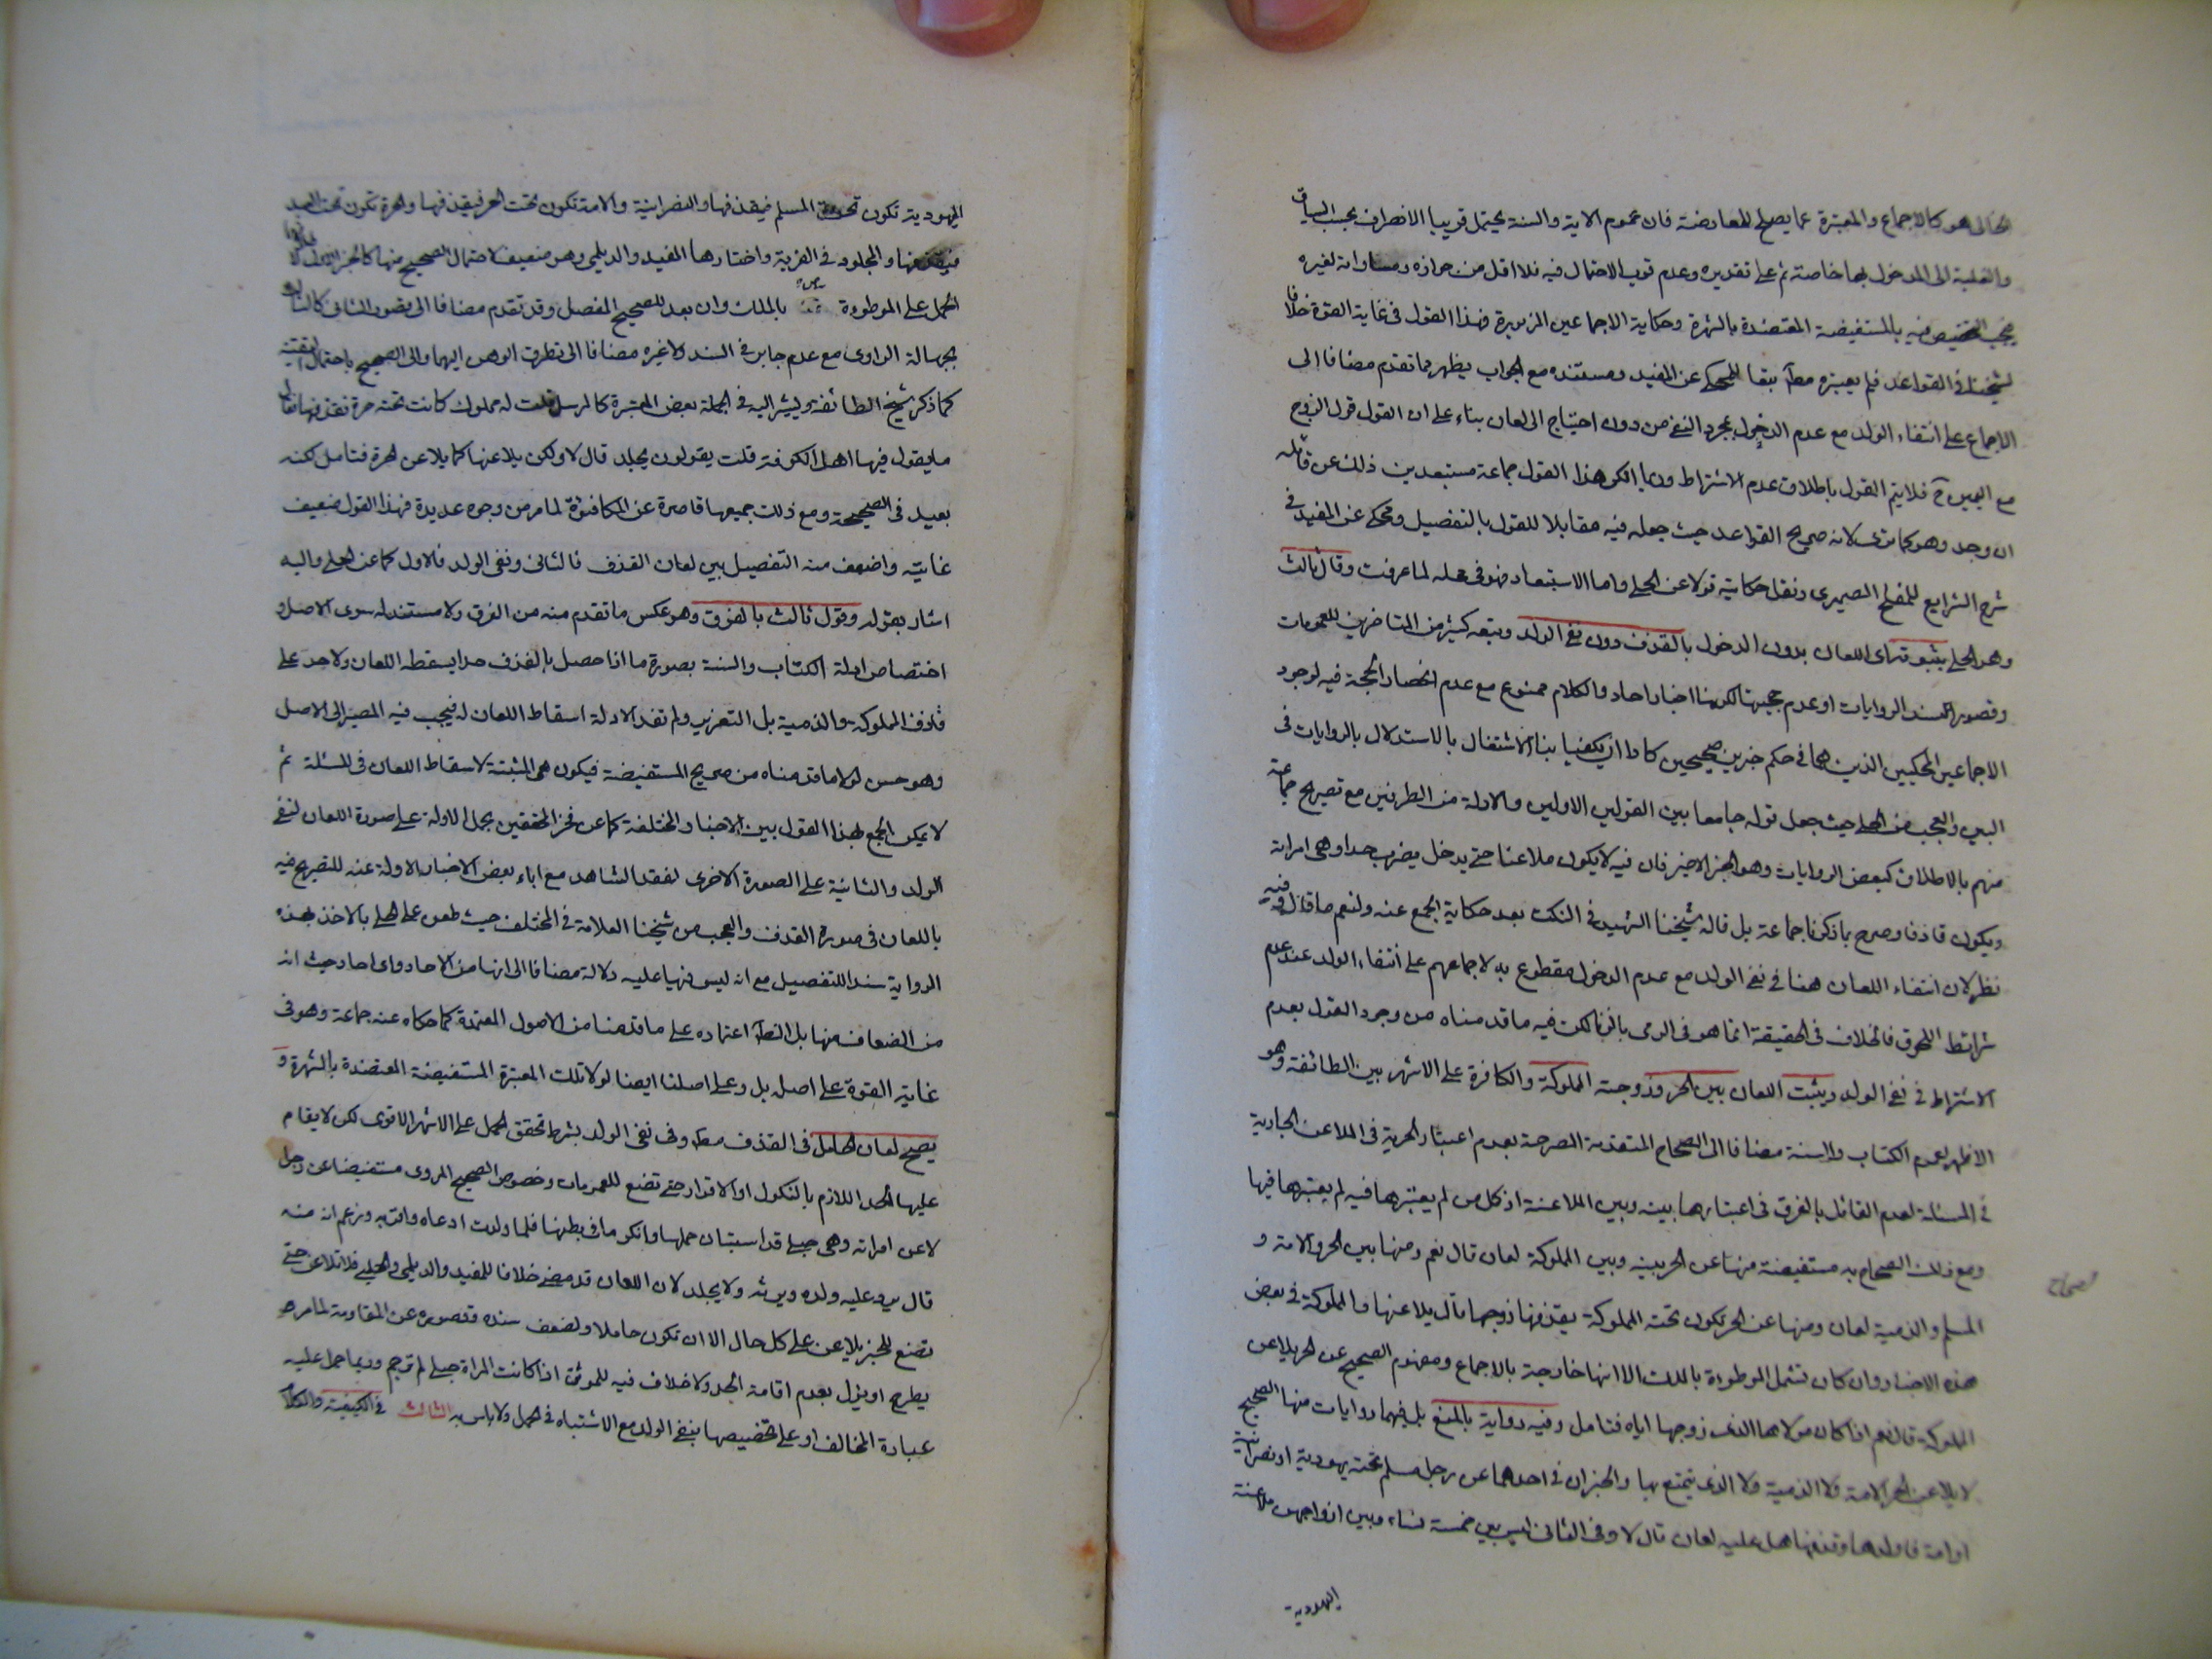 الحالى هو كالاجماع والمعتبرة عما يصلح للمعارضة فان عموم الاية والسنة يحتمل قريبا الانصراف بحسب السياق
والغلبة الى المدخول بها خاصة ثم على تقديره وعدم قرب الاحتمال فيه فلا اقل من جوازه ومساواته لغيره
فيجب التخصيص فيه بالمستفيضة المعتضدة بالشهرة وحكاية الاجماعين المزبورة فهذا القول فى غاية القوة خلافا
لشيخنا فى القواعد فلم يعتبره مطلقا تبعا للمحكى عن المفيد ومستنده مع الجواب يظهر مما تقدم مضافا الى
الاجماع على انتفاء الولد مع عدم الدخول بمجرد النفى من دون احتياج الى لعان بناء على ان القول قول الزوج
مع اليمين ح فلا يتم القول باطلاق عدم الاشتراط وربما انكر هذا القول جماعة مستبعدين ذلك عن قائله
ان وجد وهو كما ترى لانه صريح القواعد حيث جعله فيه مقابلا للقول بالتفصيل ومحكى عن المفيد فى
شرح الشرايع للمفلح الصيمرى ونقل حكايته قولا عن الحلى واما الاستبعاد فهو فى محله لما عرفت وقال ثالث
وهو الحلى بثبوته اى اللعان بدون الدخول بالقذف دون نفى الولد وتبعه كثير من المتاخرين للعمومات
وقصور السند الروايات او عدم حجيتها لكونها اخبار احاد والكلام ممنوع مع عدم انحصار الحجة فيه لوجود
الاجماعين المحكيين الذين هما فى حكم خبرين صحيحين كادا ان يكفيا بنا الاشتغال بالاستدلال بالروايات فى
البين والعجب من الحلى حيث جعل قوله جامعا بين القولين الاولين والادلة من الطرفين مع تصريح جماعة
منهم بالاطلاق كبعض الروايات وهو الخبر الاخير فان فيه لا يكون ملاعنا حتى يدخل يضرب حدا وهى امراته
ويكون قاذفا وصرح بما ذكرنا جماعة بل قاله شيخنا الشهيد فى النكت بعد حكاية الجمع عنه ولنعم ما قال فيه
نظر لان انتفاء اللعان هنا فى نفى الولد مع عدم الدخول مقطوع به لاجماعهم على انتفاء الولد عند عدم
شرائط اللحوق فالخلاف فى الحقيقة انما هو فى الرمى بالزنا لكن فيه ما قدمناه من وجود القول بعدم
الاشتراط فى نفى الولد ويثبت اللعان بين الحر وزوجته المملوكة والكافرة على الاشهر بين الطائفة وهو
الاظهر لعموم الكتاب والسنة مضافا الى الصحاح المتقدمة المصرحة بعدم اعتبار الحرية فى الملاعن الجارية
فى المسئلة لعدم القائل بالفرق فى اعتبارها بينه وبين الملاعنة اذ كل من لم يعتبرها فيه لم يعتبرها فيها
ومع ذلك الصحاح به مستفيضة منها عن الحر بينه وبين المملوكة لعان قال نعم ومنها بين الحر والامة و
المسلم والذمية لعان ومنها عن الحر تكون تحته المملوكة يقذفها زوجها قال يلاعنها والمملوكة فى بعض
هذه الاخبار وان كان تشمل الموطوءة بالملك الا انها خارجة بالاجماع ومفهوم الصحيح عن الحر يلاعن
المملوكة قال نعم اذا كان مولاها الذى زوجها اياه فتامل وفيه رواية بالمنع بل فيهما روايات منها الصحيح
لا يلاعن الحر الامة ولا الذمية ولا الذى يتمتع بها والخبران فى احدهما عن رجل مسلم تحته يهودية او نصرانية
او امة فاولدها وقذفها هل عليه لعان قال لا وفى الثانى ليس بين خمسة نساء وبين ازواجهن ملاعنة
اليهودية
اليهودية تكون تحت المسلم فيقذفها والنصرانية والامة تكون تحت الحر فيقذفها والحرة تكون تحت العبد
فيقذفها والمجلود فى الفرية واختارها المفيد والديلمى وهو ضعيف لاحتمال الصحيح منها كالخبر الاول
الحمل على الموطوءة بالملك وان بعد للصحيح المفصل وقد تقدم مضافا الى قصور الثانى كالثالث
بجهالة الراوى مع عدم جابر فى السند ولا غيره مضافا الى تطرق الوهن اليها والى الصحيح باحتمال التقية
كما ذكره شيخ الطائفة ويشير اليه فى الجملة بعض المعتبرة كالمرسل قلت له مملوك كانت تحته حرة فقذفها فقال
ما يقول فيها اهل الكوفة قلت يقولون يجلد قال لا ولكن يلاعنها كما يلاعن الحرة فتامل لكنه
بعيد فى الصحيحة ومع ذلك جميعها قاصرة عن المكافئة لما مر من وجوه عديدة فهذا القول ضعيف
غايته واضعف منه التفصيل بين لعان القذف فالثانى ونفى الولد فالاول كما عن الحلى واليه
اشار بقوله وقول ثالث بالفرق وهو عكس ما تقدم منه من الفرق ولا مستند له سوى الاصل و
اختصاص ادلة الكتاب والسنة بصورة ما اذا حصل بالقذف حد ليسقطه اللعان ولا حد على
قاذف المملوكة والذمية بل التعزير ولم تفد الادلة اسقاط اللعان له فيجب فيه المصير الى الاصل
وهو حسن لولا ما قدمناه من صريح المستفيضة فيكون هى المثبتة لاسقاط اللعان فى المسئلة ثم
لا يمكن الجمع بهذا القول بين الاخبار المختلفة كما عن فخر المحققين بحمل الاولة على صورة اللعان لنفى
الولد والثانية على الصورة الاخرى لفقد الشاهد مع اباء بعض الاخبار الاولة عنه للتصريح فيه
باللعان فى صورة القذف والعجب من شيخنا العلامة فى المختلف حيث طعن على الحلى بالاخذ بهذه
الرواية سندا للتفصيل مع انه ليس فيها عليه دلالة مضافا الى انها من الاحاد واى احاد حيث انه
من الضعاف منها بل الظاهر اعتماده على ما قدمنا من الاصول المعتمدة كما حكاه عنه جماعة وهو فى
غاية القوة على اصل بل وعلى اصلنا ايضا لولا تلك المعتبرة المستفيضة المعتضدة بالشهرة و
يصح لعان الحامل فى القذف مطلقا وفى نفى الولد بشرط تحقق الحمل على الاشهر الاقوى لكن لا يقام
عليها الحد اللازم بالنكول او الاقرار حتى تضع للعمومات وخصوص الصحيح المروى مستفيضا عن رجل
لاعن امراته وهى حبلى قد استبان حملها وانكر ما فى بطنها فلما ولدت ادعاه واقر به وزعم انه منه
قال يرد عليه ولده ويرثه ولا يجلد لان اللعان قد مضى خلافا للمفيد والديلمى والحلبى فلا تلاعن حتى
تضع للخبر يلاعن على كل حال الا ان تكون حاملا ولضعف سنده وقصوره عن المقاومة لما مر
يطرح او يؤل بعدم اقامة الحد ولا خلاف فيه للموثق اذا كانت المراة حبلى لم ترجم وربما حمل عليه
عبارة المخالف او على تخصيصها بنفى الولد مع الاشتباه فى الحمل ولا باس به الثالث فى الكيفية والكلام